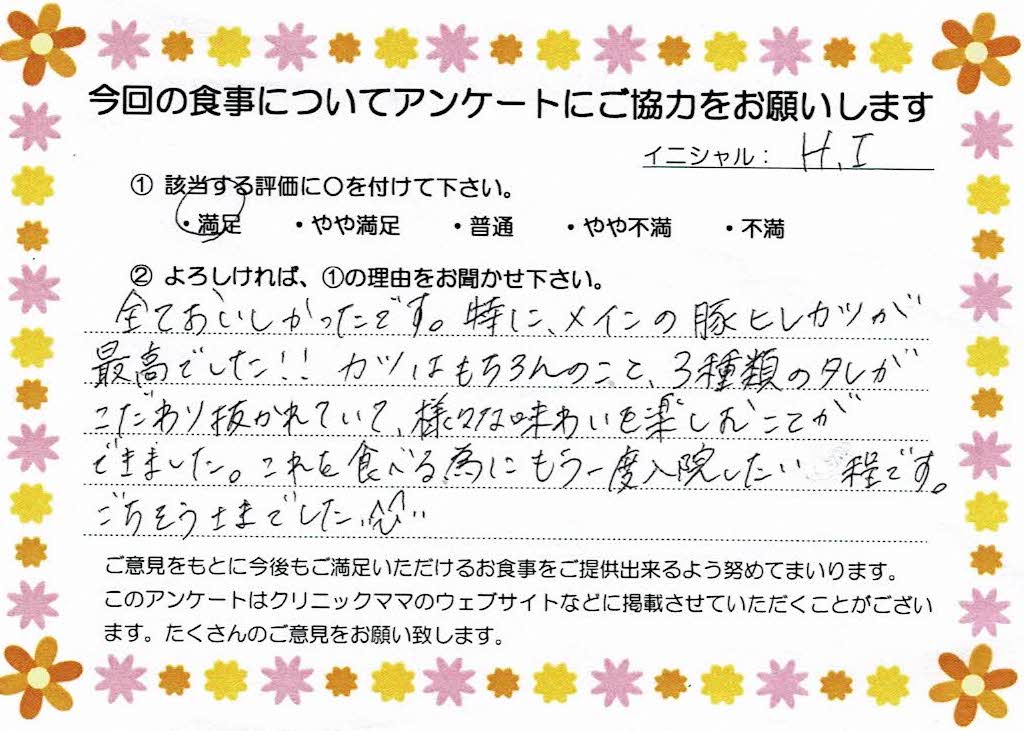 今回の食事についてアンケートにご協力をお願いします
イニシャル： H.I
① 該当する評価に〇を付けて下さい。
・満足 ・やや満足 ・普通 ・やや不満 ・不満
② よろしければ、①の理由をお聞かせ下さい。
全ておいしかったです。特に、メインの豚ヒレカツが
最高でした!! カツはもちろんのこと、3種類のタレが
こだわり抜かれていて、様々な味わいを楽しむことが
できました。これを食べる為にもう一度入院したい 程です。
ごちそうさまでした
ご意見をもとに今後もご満足いただけるお食事をご提供出来るよう努めてまいります。
このアンケートはクリニックママのウェブサイトなどに掲載させていただくことがござい
ます。たくさんのご意見をお願い致します。